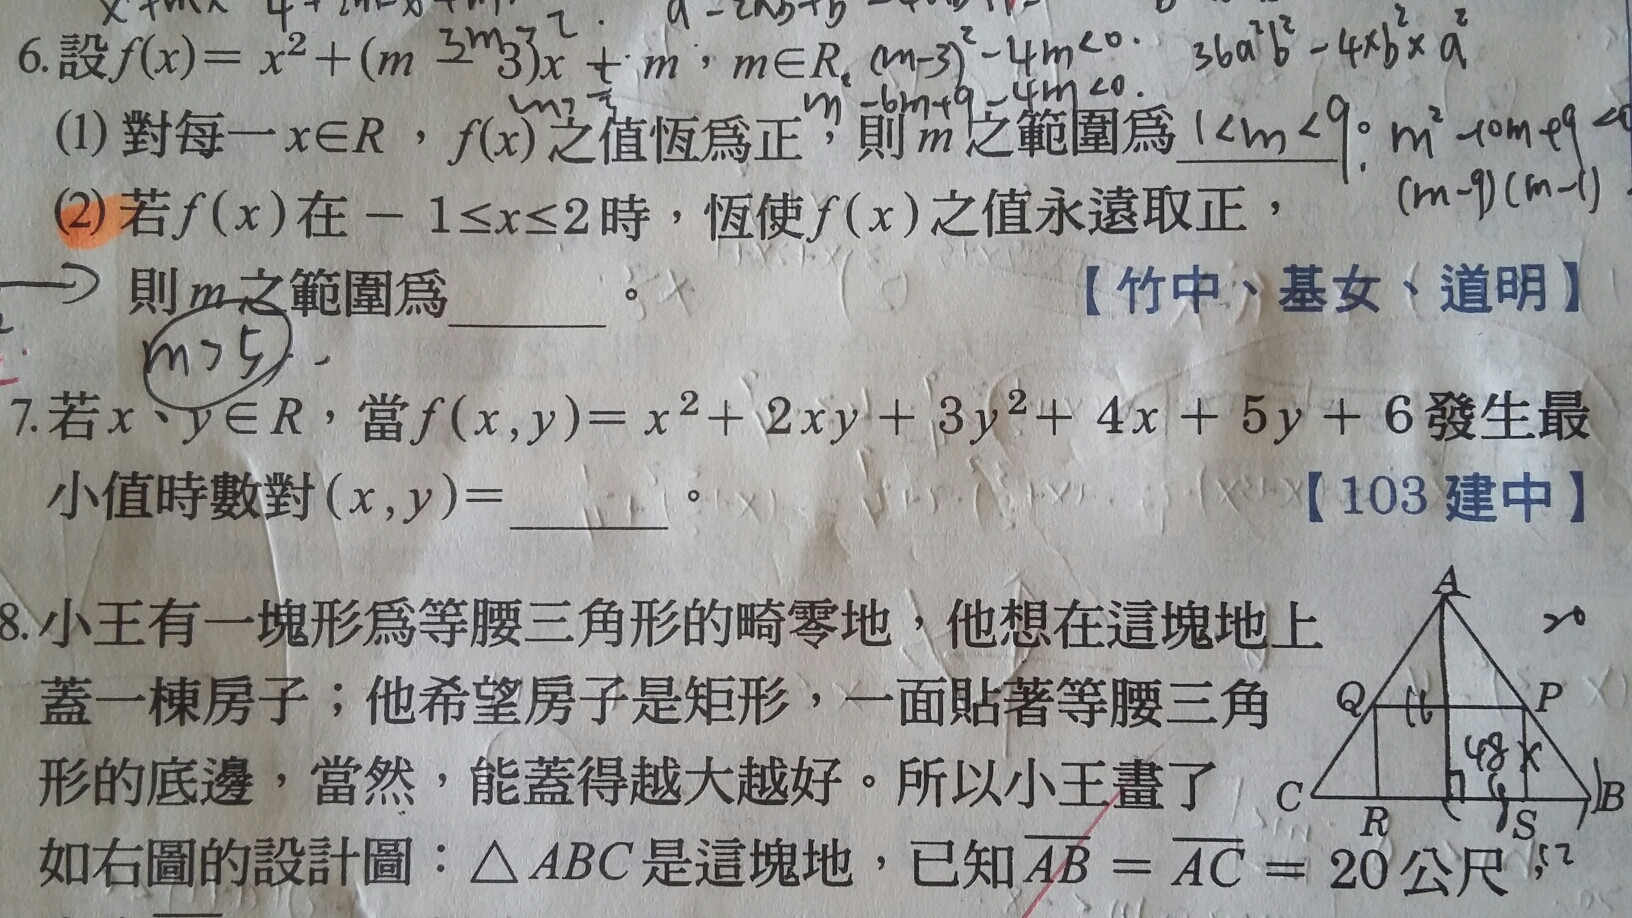 6.設f(x)= x²+(m－3)x＋m，m∈R, (m-3)²-4m<0. 36a²b²-4xb²xa²
m²-6m+9-4m<0.
(1) 對每一x∈R，f(x)之值恆爲正，則m之範圍爲1<m<9。 m²-10m+9<0
(m-9)(m-1)
(2) 若f(x)在－1≤x≤2時，恆使f(x)之值永遠取正，
則m之範圍爲______。 【竹中、基女、道明】
m>5
7.若x、y∈R，當f(x,y)= x²+2xy+3y²+4x+5y+6發生最
小值時數對(x,y)=______。 【103建中】
8.小王有一塊形爲等腰三角形的畸零地，他想在這塊地上
蓋一棟房子；他希望房子是矩形，一面貼著等腰三角
形的底邊，當然，能蓋得越大越好。所以小王畫了
如右圖的設計圖：△ABC是這塊地，已知AB = AC = 20公尺，
A
Q P
48 x
C B
R S